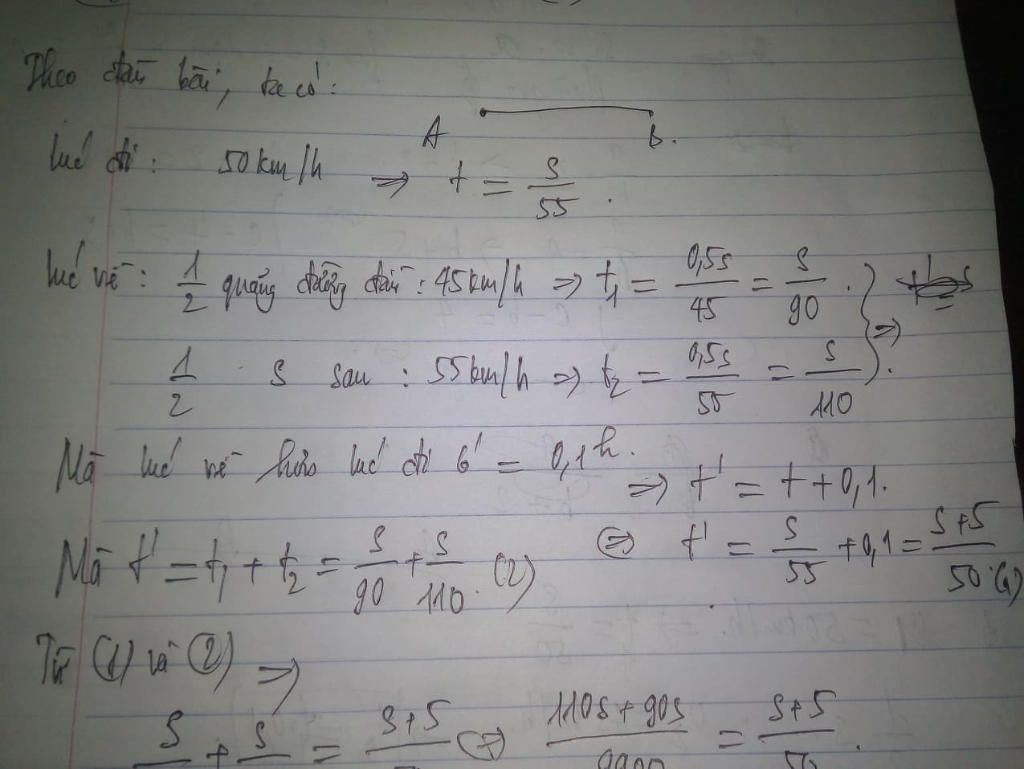 Theo đầu bài, ta có:
A B.
lúc đi: 50km/h => t = s/55.
lúc về: 1/2 quãng đường đầu: 45km/h => t1 = 0,5s/45 = s/90. } =>
1/2 s sau: 55km/h => t2 = 0,5s/55 = s/110.
Mà lúc về hơn lúc đi 6' = 0,1h.
=> t' = t + 0,1.
<=> t' = s/55 + 0,1 = s+5/50.(1)
Mà t' = t1 + t2 = s/90 + s/110. (2)
Từ (1) và (2) =>
s + s = s+5 <=> 110s + 90s/9900 = s+5/50.